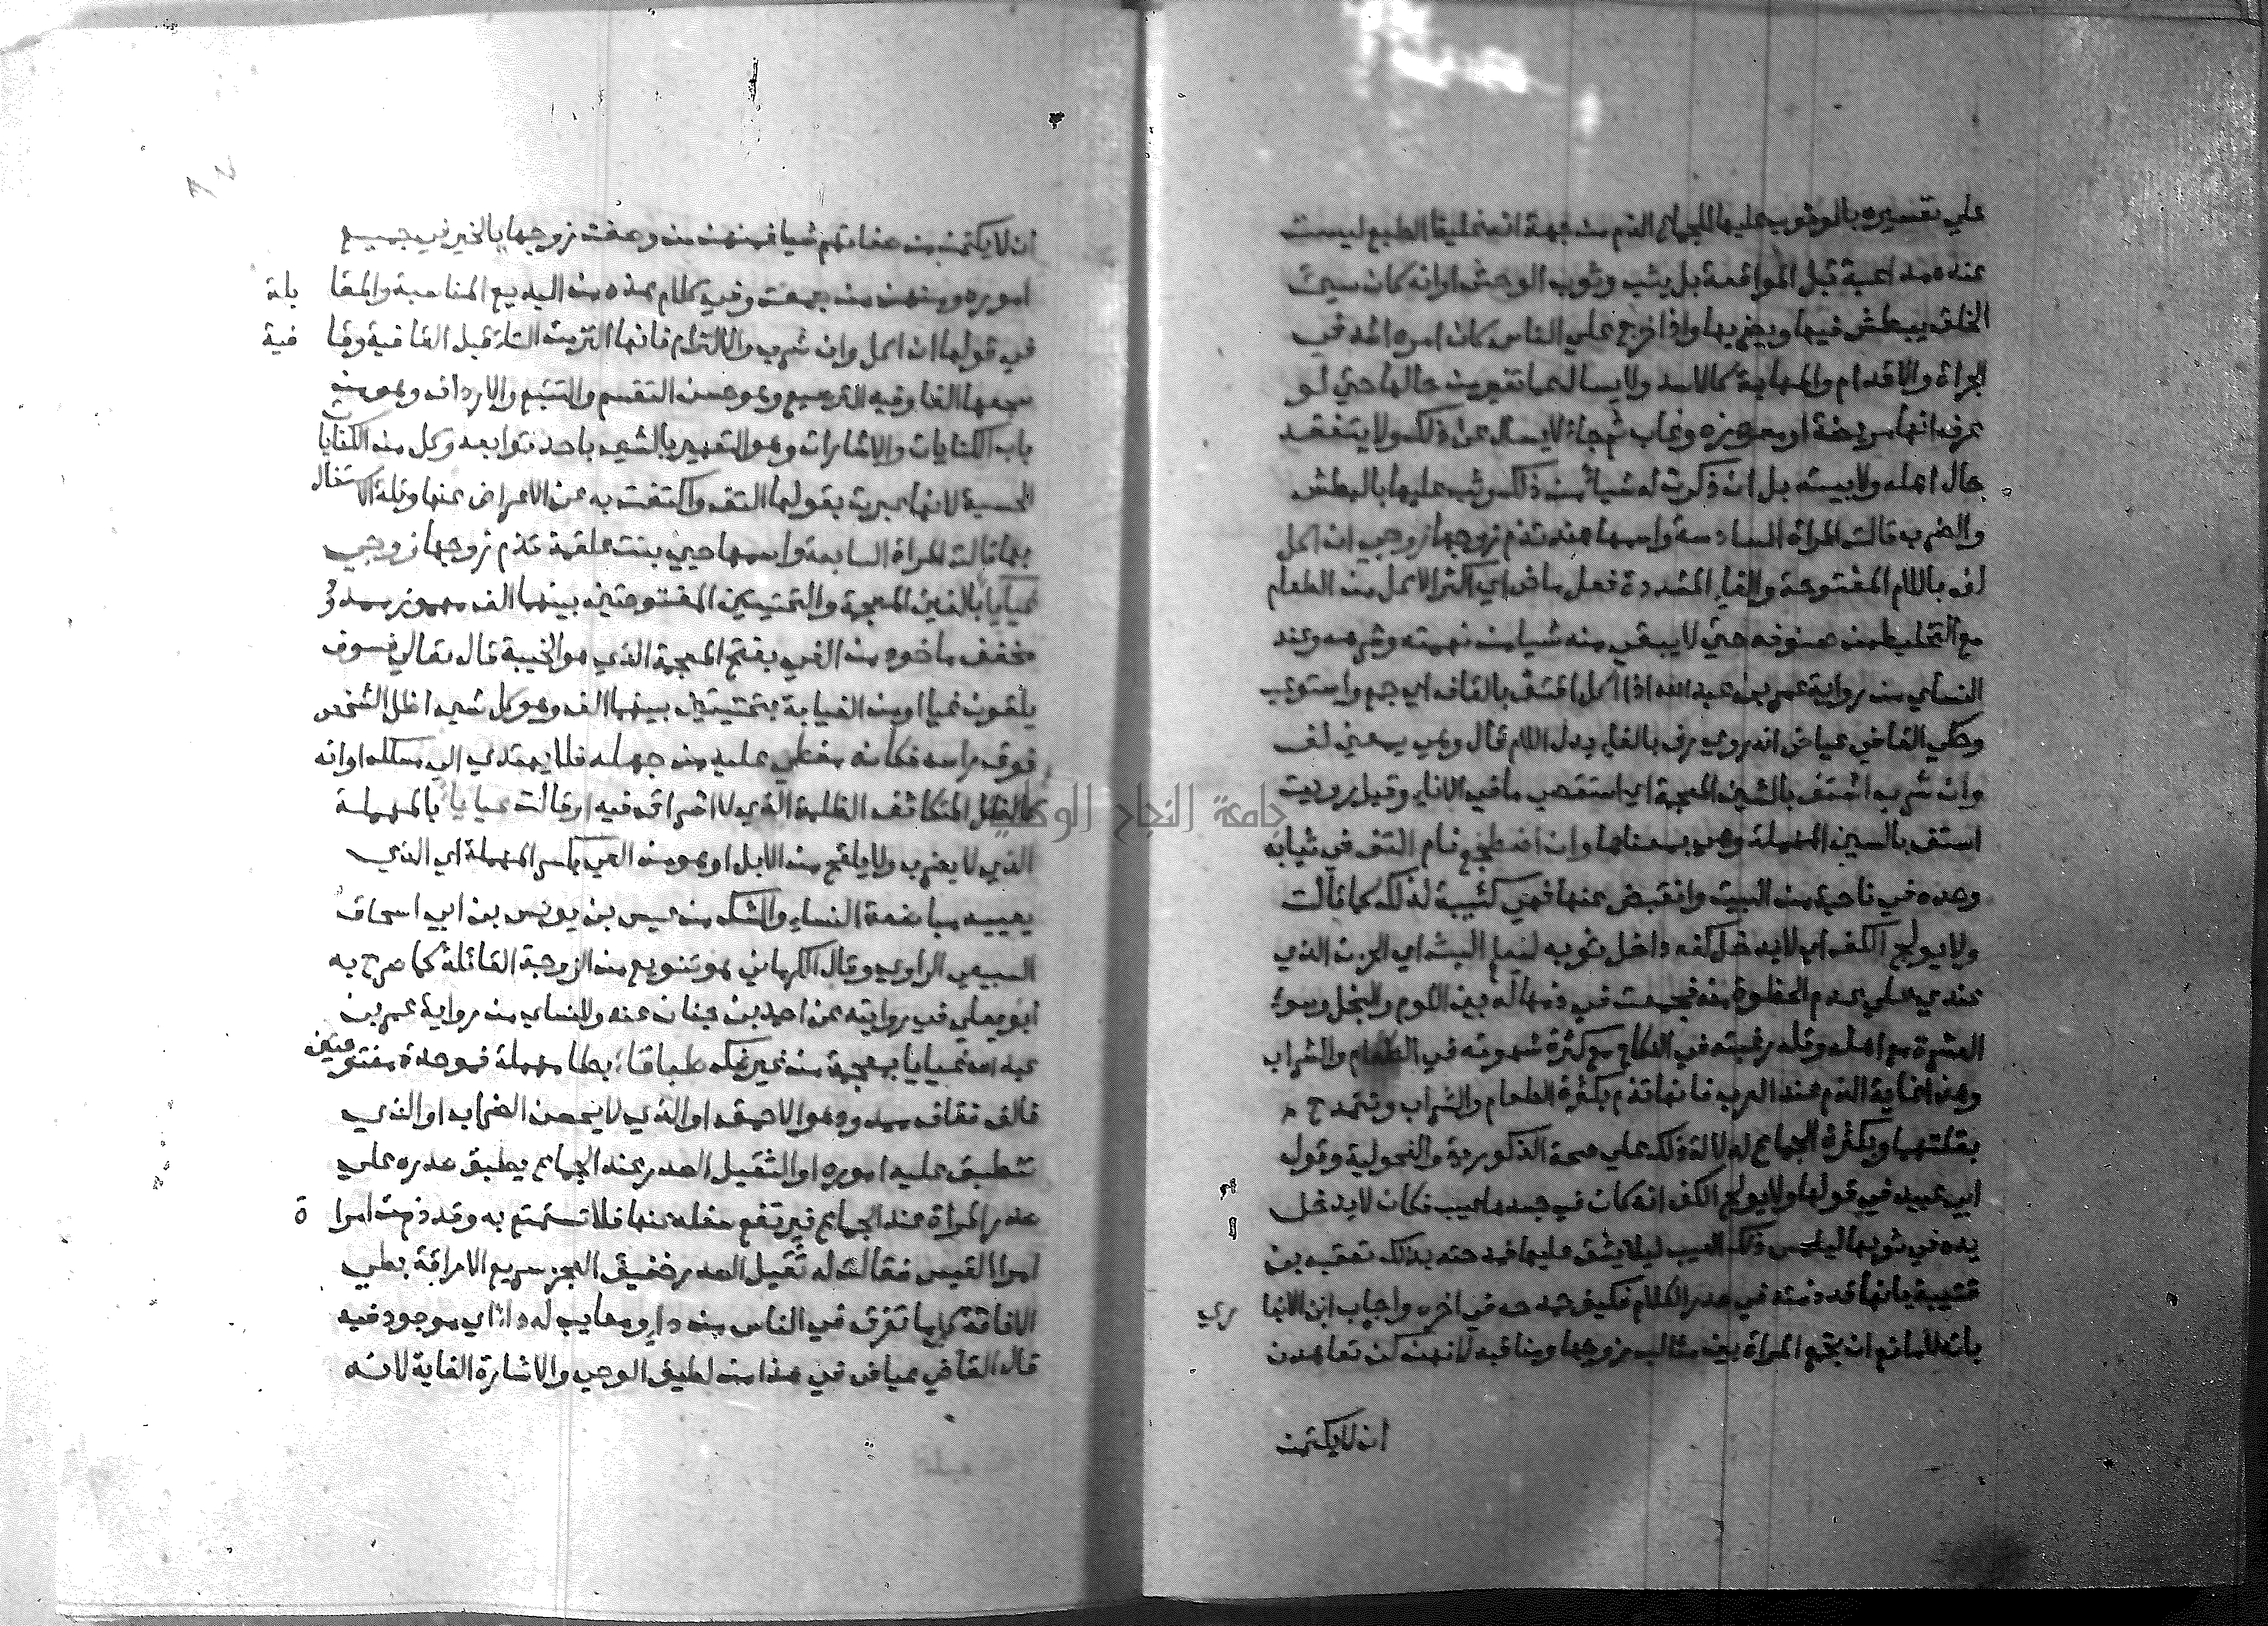 علي تفسيره بالوثوب عليها للجماع الذم من جهة انه غليظ الطبع ليست
عنده مداعبة قبل المواقعة بل يثب وثوب الوحش او انه كان سيئ
الخلق يبطش فيها ويضربها واذا خرج علي الناس كان امره اشد في
الجراة والاقدام والمهابة كالاسد ولا يسال عما تغير من حالها حتي لو
عرف انها مريضة او معوزه وغاب ثم جاء لا يسال عن ذلك ولا يتفقد
حال اهله ولا بيته بل ان ذكرت له شيا من ذلك وثب عليها بالبطش
والضرب قالت المراة السادسة واسمها هند تذم زوجها زوجي ان اكل
لف باللام المفتوحة والفاء المشددة فعل ماض اي اكثر الاكل من الطعام
مع التخليط من صنوفه حتي لا يبقي منه شيا من نهمته وشرهه وعند
النساي من رواية عمر بن عبد الله اذا اكل اقتف بالقاف اي جمع واستوعب
وحكي القاضي عياض انه روي رف بالفاء بدل اللام قال وهي بمعني لف
وان شرب اشتف بالشين المعجمة اي استقصي ما في الاناء وقيل رويت
استف بالسين المهملة وهي بمعناها وان اضطجع نام التف في ثيابه
وحده في ناحية من البيت وانقبض عنها فهي كئيبة لذلك كما قالت
ولا يولج الكف اي لا يدخل كفه داخل ثوبه ليعلم البث اي الحزن الذي
عندي علي عدم الحظوة منه فجمعت في ذمها له بين اللوم والبخل وسوء
العشرة مع اهله وقله رغبته في النكاح مع كثرة شهوته في الطعام والشراب
وهذا غاية الذم عند العرب فانها تذم بكثرة الطعام والشراب وتتمدح
بقلتهما وبكثرة الجماع لدلالة ذلك علي صحة الذكورية والفحولية وقول
ابي عبيد في قولها ولا يولج الكف انه كان في جسدها عيب فكان لا يدخل
يده في ثوبها ليلمس ذلك العيب ليلا يشق عليها فمدحته بذلك تعقبه بن
قتيبة بانها قد ذمته في صدر الكلام فكيف تمدحه في اخره واجاب ابن الانبا ري
بانه لا مانع ان تجمع المراة بين مثالب زوجها ومناقبه لانهن كن تعاهدن
ان لا يكتمن
ان لا يكتمن من صفاتهم شيا فمنهن من وصفت زوجها بالخير في جميع
اموره ومنهن من جمعت وفي كلام هذه من البديع المناسبة والمقا بلة
في قولها ان اكل وان شرب والالتزام فانها التزمت التاء قبل القافية وقا فية
سجعها الفا وفيه الترصيع وهو حسن التقسيم والتتبع والارداف وهو من
باب الكنايات والاشارات وهو التعبير بالشي باحد توابعه وكل من الكنايا
الحسية لانها عبرت بقولها التف واكتفت به عن الاعراض عنها وقلة الاشتغال
بها قالت المراة السابعة واسمها حيي بنت علقمة تذم زوجها زوجي
غياياء بالغين المعجمة والتحتيتين المفتوحتين بينهما الف مهموز ممدود
مخفف ماخوذ من الغي بفتح المعجمة الذي هو الخيبة قال تعالي فسوف
يلقون غيا او من الغياية بتحتيتين بينهما الف وهو كل شي اظل الشخص
فوق راسه فكانه مغطي عليه من جهله فلا يهتدي الي مسلك او انه
كالظل المتكاثف الظلمة الذي لا اشراق فيه او قالت عياياء بالمهملة
الذي لا يضرب ولا يلقح من الابل او هو من العي بكسر المهملة اي الذي
يعييه مباضعة النساء والشك من عيسي بن يونس بن ابي اسحاق
السبيعي الراوي وقال الكرماني هو تنويع من الزوجة القائلة كما صرح به
ابو يعلي في روايته عن احمد بن جناب عنه وللنساي من رواية عمر بن
عبد الله غياياء بمعجمة من غير شك طباقاء بطا مهملة فموحدة مفتوحتين
فالف فقاف ممدود وهو الاحمق او الذي لا يحسن الضراب او الذي
تنطبق عليه اموره او الثقيل الصدر عند الجماع يطبق صدره علي
صدر المراة عند الجماع فيرتفع سفله عنها فلا تستمتع به وقد ذمت امرا ة
امرا القيس فقالت له ثقيل الصدر خفيف العجز سريع الاراقة بطي
الافاقة كل ما تفرق في الناس من داء ومعايب له داء اي موجود فيه
قال القاضي عياض في هذا من لطيف الوحي والاشارة الغاية لانه
جامعة النجاح الوطنية